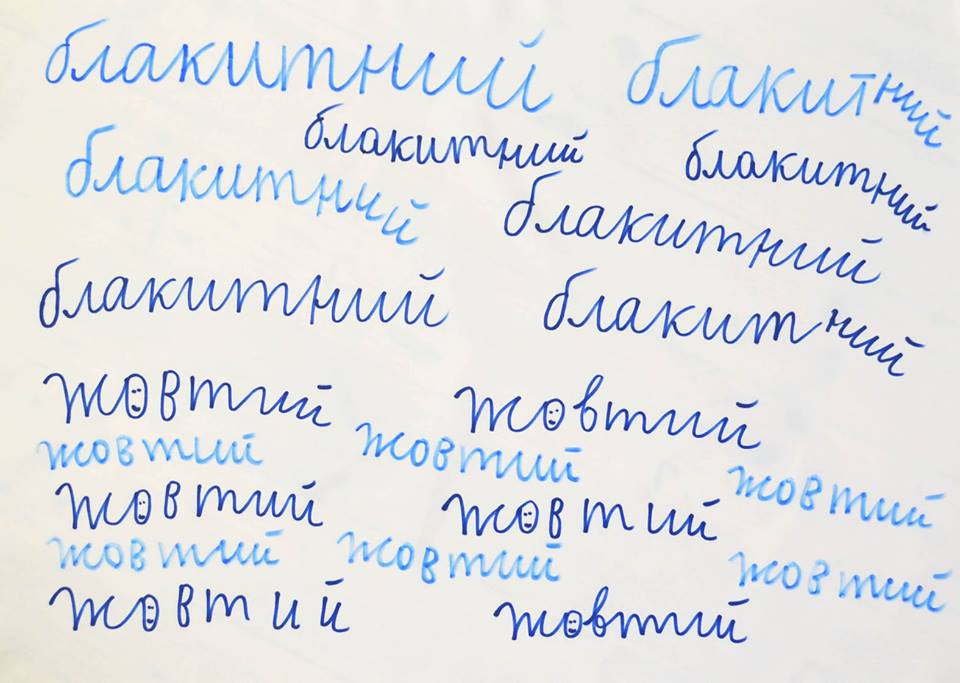 блакитний блакитний
блакитний блакитний
блакитний блакитний
блакитний блакитний
жовтий жовтий
жовтий жовтий жовтий
жовтий жовтий
жовтий жовтий жовтий
жовтий жовтий